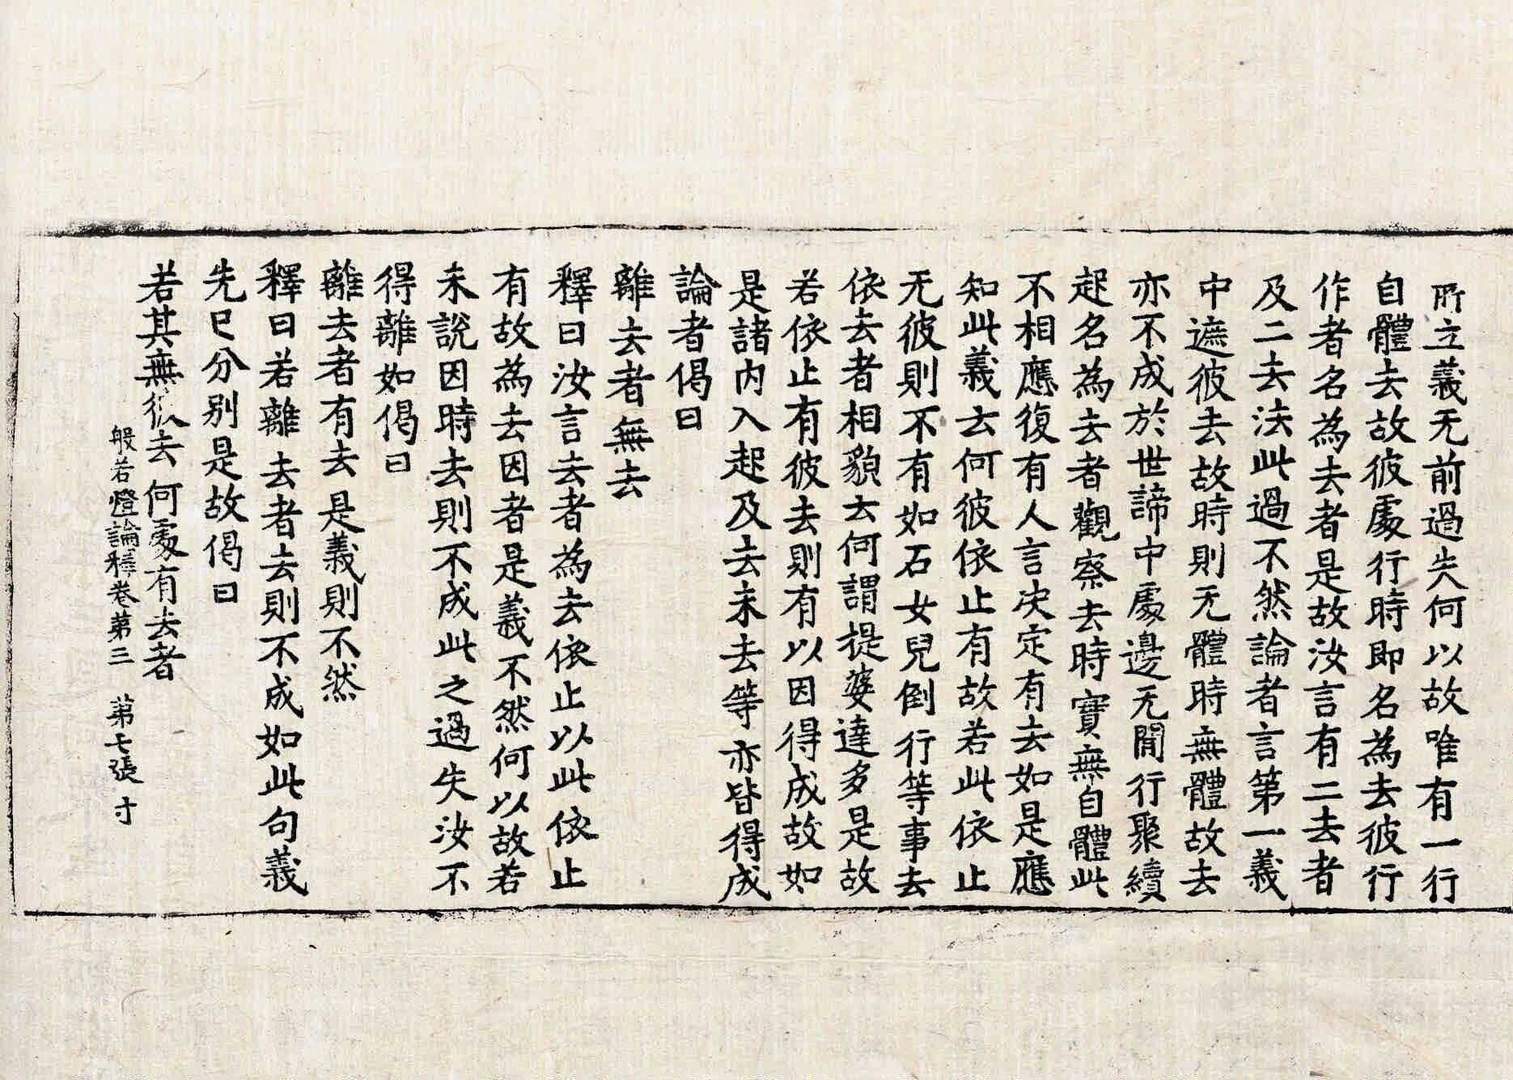 所立義无前過失何以故唯有一行
自體去故彼處行時即名為去彼行
作者名為去者是故汝言有二去者
及二去法此過不然論者言第一義
中遮彼去故時則无體時無體故去
亦不成於世諦中處邊无閒行聚續
起名為去者觀察去時實無自體此
不相應復有人言决定有去如是應
知此義云何彼依止有故若此依止
无彼則不有如石女兒倒行等事去
依去者相貌云何謂提婆達多是故
若依止有彼去則有以因得成故如
是諸內入起及去未去等亦皆得成
論者偈曰
離去者無去
釋曰汝言去者為去依止以此依止
有故為去因者是義不然何以故若
未說因時去則不成此之過失汝不
得離如偈曰
離去者有去是義則不然
釋曰若離去者去則不成如此句義
先已分別是故偈曰
若其無彼去何處有去者
般若燈論釋卷第三 第七張 寸